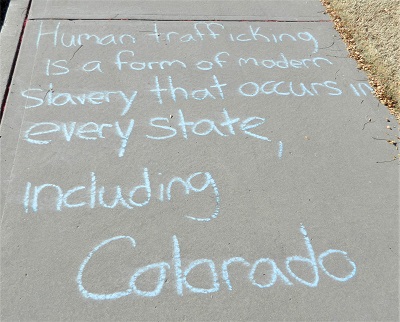 Human trafficking
is a form of modern
slavery that occurs in
every state,
including
Colorado